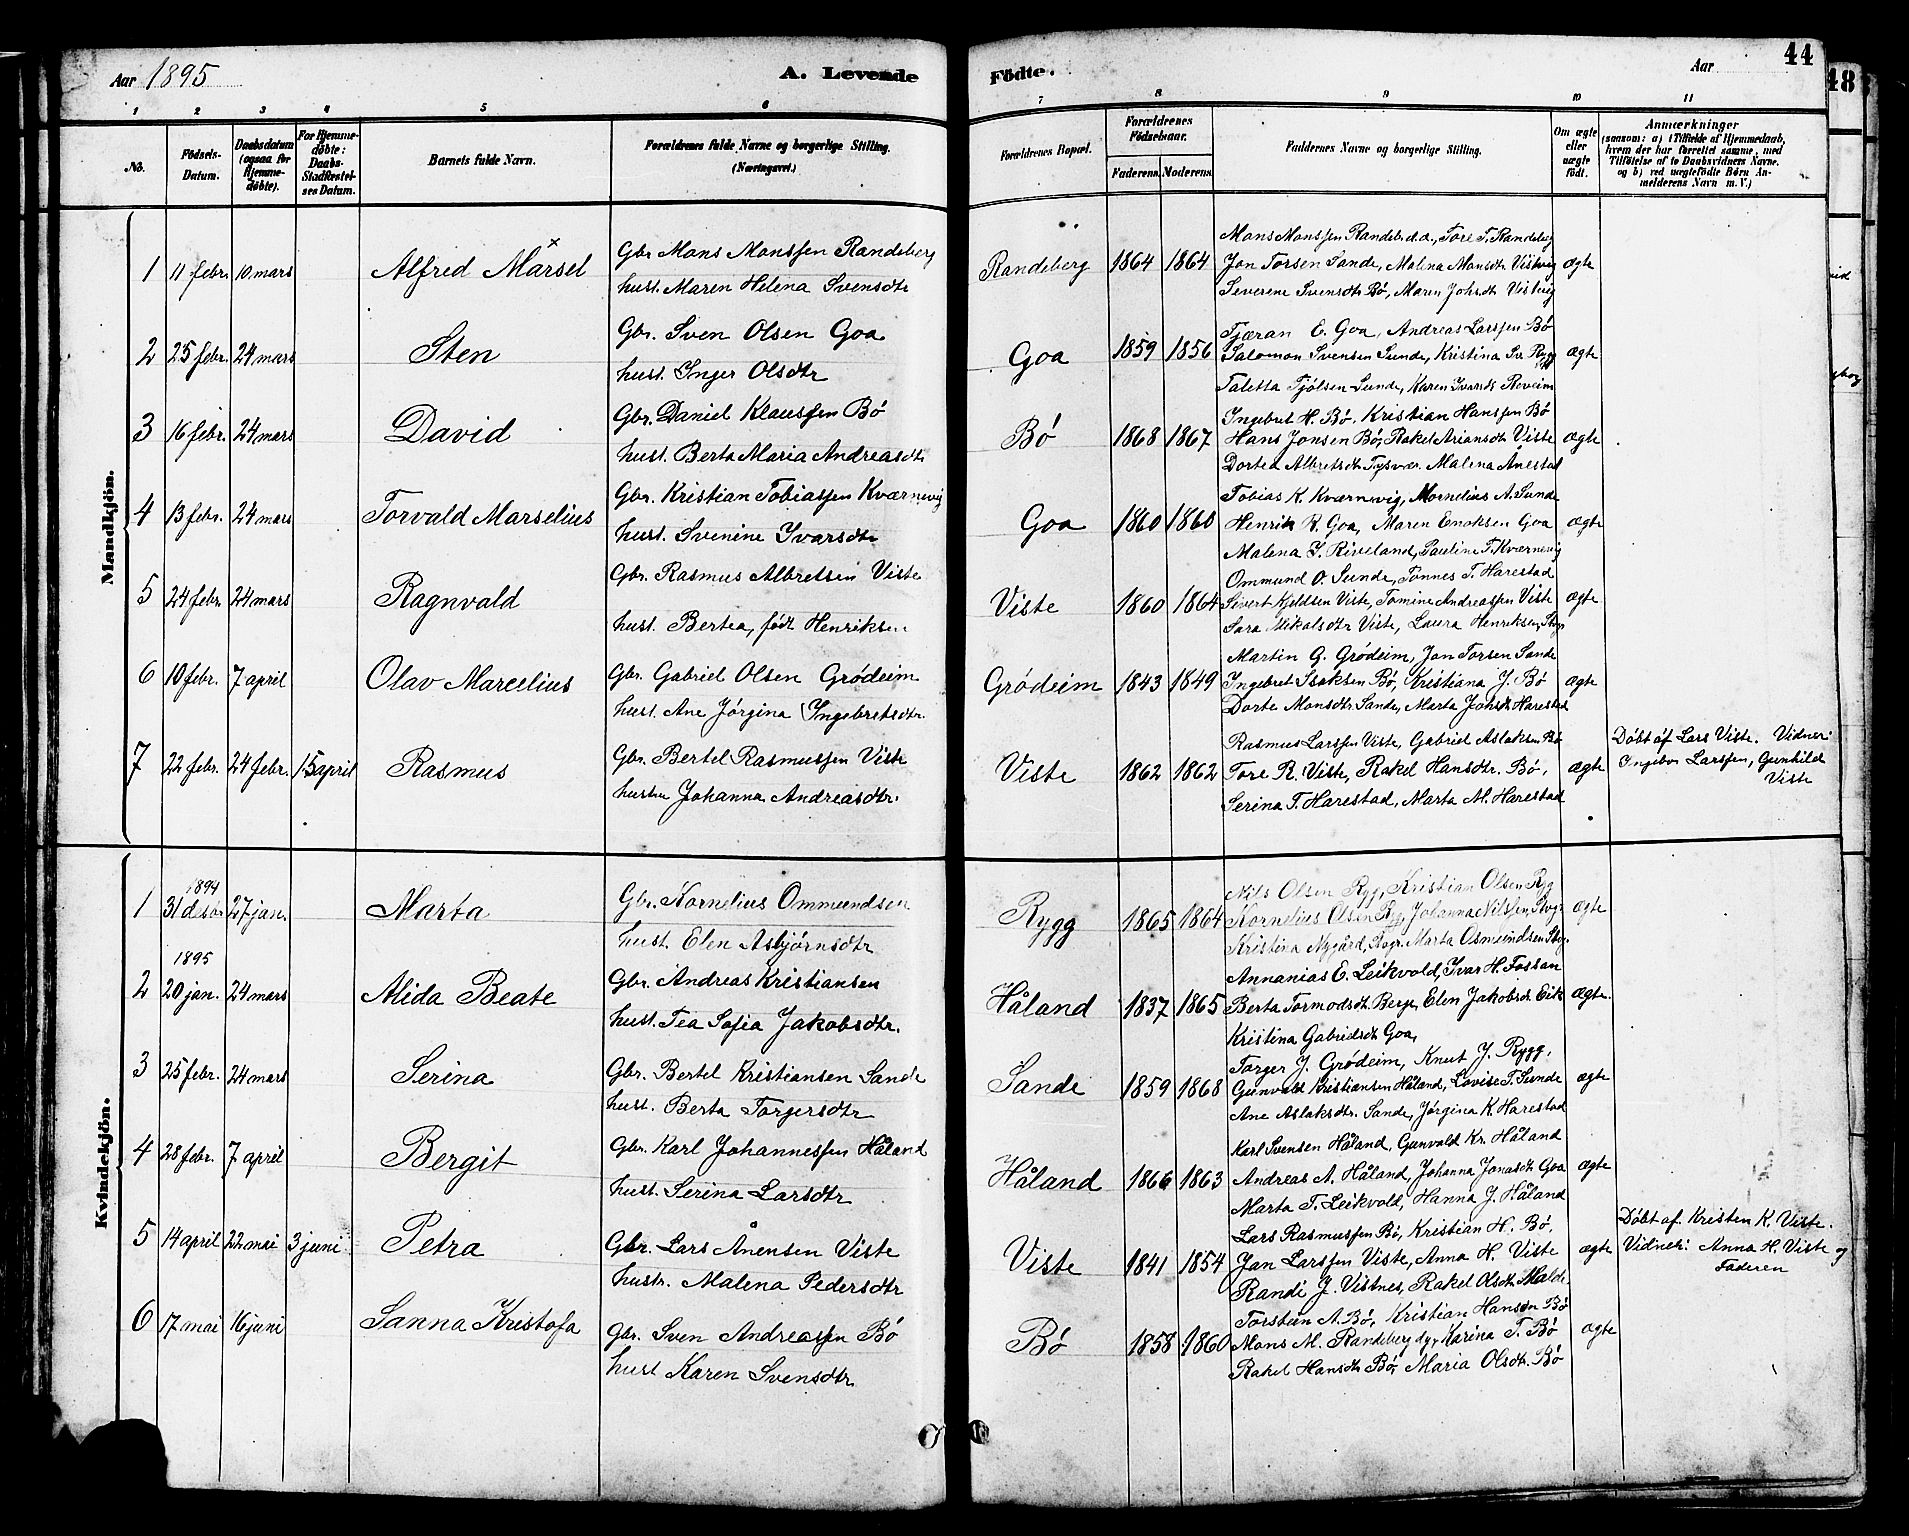 Aar 1895
A. Levende
Födte.
Aar
44
48
1 2 3 4 5 6 7 8 9 10 11
No.
Födsels-Datum.
Daabsdatum (ogsaa for Hjemme-döbte).
For Hjemme-döbte: Daabs-Stadfæstel-ses Datum.
Barnets fulde Navn.
Forældrenes fulde Navne og borgerlige Stilling. (Næringsvei.)
Forældrenes Bopæl.
Forældrenes Födselsaar.
Faderens. Moderens.
Faddernes Navne og borgerlige Stilling.
Om ægte eller uægte födt.
Anmærkninger
(saasom: a) i Tilfælde af Hjemmedaab, hvem der har forrettet samme, med Tilföielse af to Daabsvidners Navne. og b) ved uægtefödte Börn An-melderens Navn m. V.)
Mandkjön.
1 11 febr. 10 mars Alfred Marsel × Gbr Mons Monssen Randeberg
hust. Maren Helena Svensdtr
Randeberg 1864 1864 Mons Monssen Randeb. d.æ., Tore T. Randeberg
Jon Torsen Sande, Malena Monsdtr Vistvig ægte
Severene Svensdtr Bø, Maren Johsdtr Vistvig
2 25 febr. 24 mars Sten Gbr. Sven Olsen Goa
hust. Inger Olsdtr
Goa 1859 1856 Tjæran E. Goa, Andreas Larssen Bø
Salomon Svensen Sunde, Kristina Sv. Rygg ægte
Taletta Tjølsen Sunde, Karen Ivarsdt
3 16 febr. 24 mars David Gbr. Daniel Klaussen Bø
hust. Berta Maria Andreasdtr
Bø 1868 1867 Ingebret H. Bø, Kristian Hanssen Bø
Hans Jonsen Bø, Rakel Ariansdtr Viste ægte
Dortea Albretsdtr Tysvær. Malena Anestad
4 13 febr. 24 mars Torvald Marselius Gbr. Kristian Tobiassen Kværnevig
hust. Svenine Ivarsdtr
Goa 1860 1860 Tobias K. Kværnevig, Kornelius A. Sunde
Henrik R. Goa, Maren Enoksen Goa ægte
Malena I. Riveland, Pauline T. Kværnevig
5 24 febr. 24 mars Ragnvald Gbr. Rasmus Albretsen Viste
hust. Bertea, født Henriksen
Viste 1860 1864 Ommund O. Sunde, Tønnes T. Harestad
Sivert Kjeldsen Viste, Tomine Andreassen Viste ægte
Sara Mikalsdtr Viste, Laura Henriksen,
6 10 febr. 7 april Olav Marcelius Gbr. Gabriel Olsen Grødeim
hust. Ane Jørgina Ingebretsdtr.
Grødeim 1843 1849 Martin G. Grødeim, Jon Torsen Sande
Ingebret Isaksen Bø, Kristiana J. Bø ægte
Dorte Monsdtr Sande, Marta Johsdt Harestad
7 22 febr. 24 febr. 15 april Rasmus Gbr. Bertel Rasmussen Viste
hustru Johanna Andreasdtr.
Viste 1862 1862 Rasmus Larssen Viste, Gabriel Aslaksen Bø
Tore R. Viste, Rakel Hansdtr. Bø, ægte
Serina T. Harestad, Marta M. Harestad
Døbt af Lars Viste. Vidner:
Ingebor Larssen, Gunhild
Viste
Kvindekjön.
1894
1 31 desbr 27 jan. Marta Gbr. Kornelius Ommundsen
hust. Elen Asbjørnsdtr
Rygg 1865 1864 Nils Olsen Rygg, Kristian Olsen Rygg
Kornelius Olsen Rygg, Johanna Nilssen, Stvgr ægte
Kristina Nygård, Stvgr. Marta Osmundsen Stvgr.
1895
2 20 jan. 24 mars Alida Beate Gbr. Andreas Kristiansen
hust. Tea Sofia Jakobsdtr.
Håland 1837 1865 Annanias E. Leikvold, Ivar H. Fossan
Berta Tormodsdtr Berge, Elen Jakobsdt Eik ægte.
Kristina Gabrielsdt Goa,
3 25 febr. 24 mars Serina Gbr. Bertel Kristiansen Sande
hust. Berta Torgersdtr
Sande 1859 1868 Torger J. Grødeim, Knut J. Rygg.
Gunvald Kristiansen Håland, Lovise T. Sunde ægte
Ane Aslaksdtr. Sande, Jørgina K. Harestad
4 28 febr. 7 april Bergit Gbr. Karl Johannessen Håland
hust. Serina Larsdtr
Håland 1866 1863 Karl Svensen Håland, Gunvald Kr. Håland
Andreas A. Håland, Johanna Jonasdt Goa ægte
Marta T. Leikvold, Hanna J. Håland
5 14 april 22 mai 3 juni Petra Gbr. Lars Ånensen Viste
hustr. Malena Pedersdtr
Viste 1841 1854 Lars Rasmussen Bø, Kristian H. Bø,
Jan Larssen Viste, Anna H. Viste ægte
Randi J. Vistnes, Rakel Olsdtr Malde.
Døbt af. Kristen K. Viste.
Vidner: Anna H. Viste og
Faderen
6 17 mai 16 juni Sanna Kristofa Gbr. Sven Andreassen Bø
hust Karen Svensdtr.
Bø 1858 1860 Torstein A. Bø, Kristian Hansen Bø
Mons M. Randeberg d.y., Karina T. Bø ægte
Rakel Hansdtr Bø, Maria Olsdtr. Bø